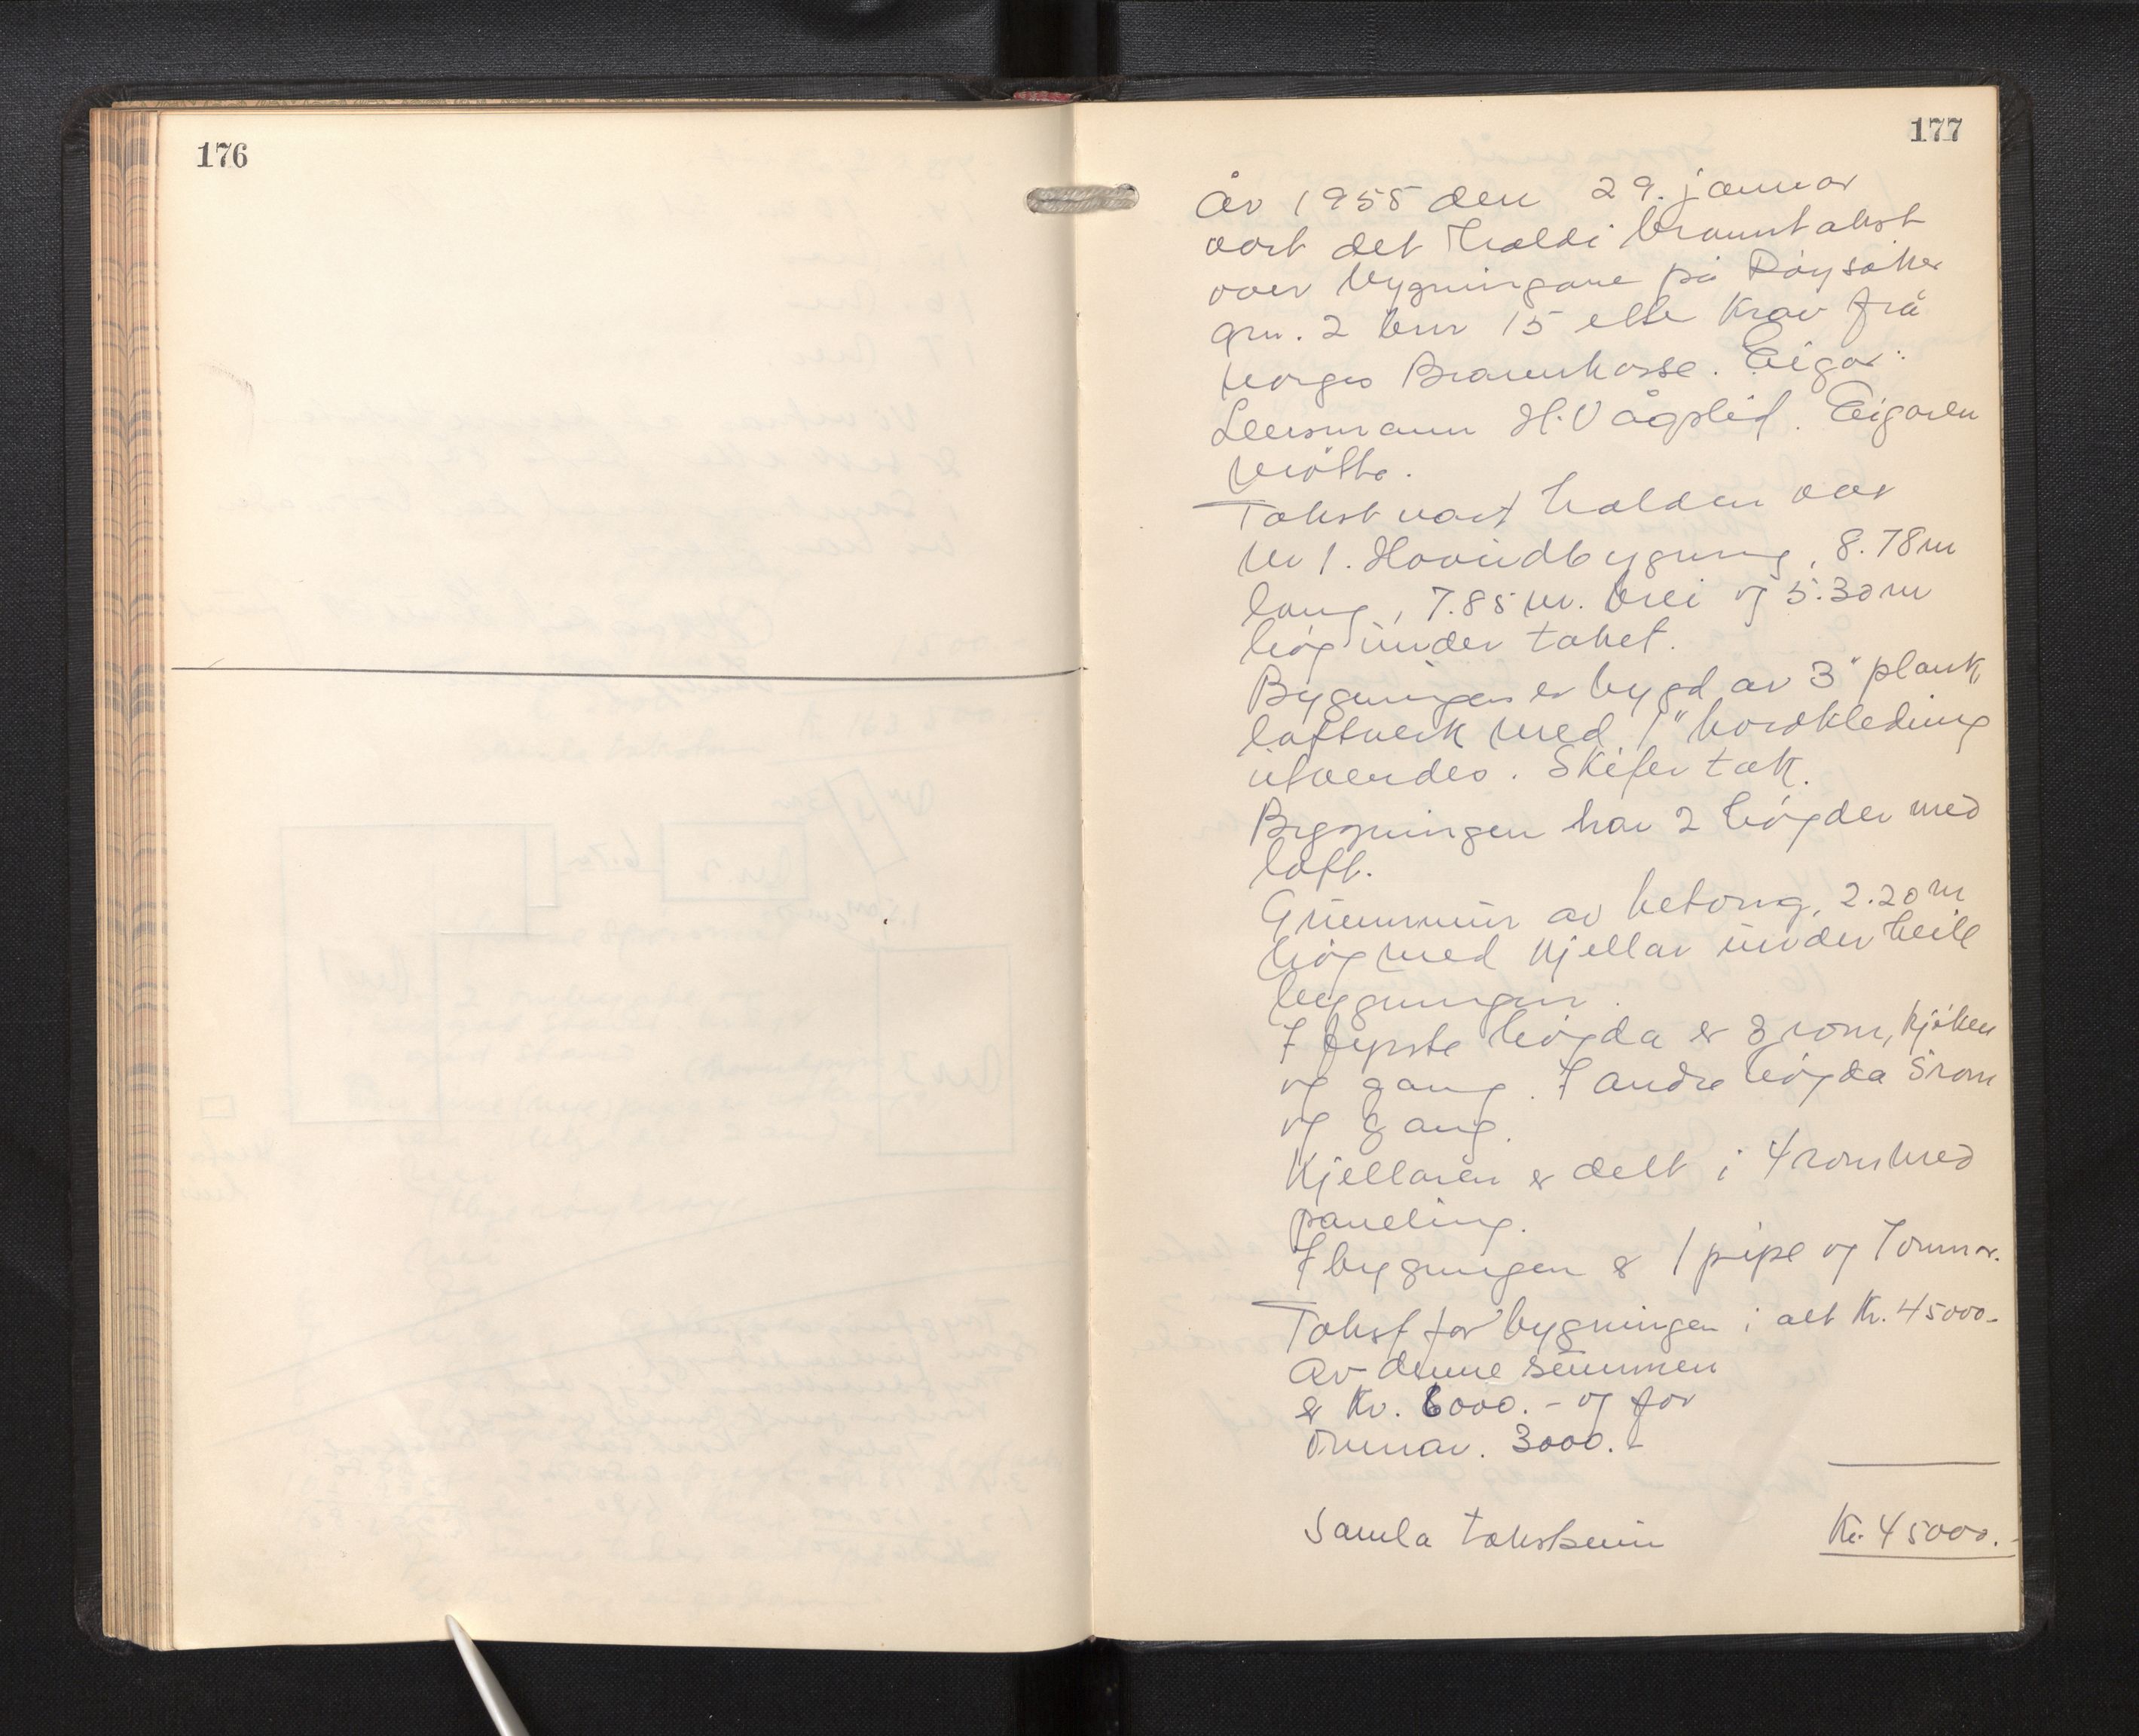 176
177
År 1955 den 29. januar
vart det haldi branntakst
over bygningane på Røysåker
gnr. 2 bnr 15 etter krav frå
Norges Brannkasse. Eigar:
Lensmann H. Vågslid. Eigaren
møtte.
Takst vart halden over
Nr 1. Hovudbygning, 8.78 m
lang, 7.85 m. brei og 5.30 m
høg under taket.
Bygningen er bygd av 3" plank,
laftverk med 1" bordkledning
utvendes. Skifer tak.
Bygningen har 2 høgder med
loft.
Grunnmur av betong, 2.20 m
høg med kjellar under heile
bygningen.
I fyrste høgda er 3 rom, kjøken
og gang. I andre høgda 5 rom
og gang.
Kjellaren er delt i 4 rom med
paneling.
I bygningen er 1 pipe og 7 omnar.
Takst for bygningen i alt Kr. 45000.-
Av denne summen
er Kr. 6000.- og for
omnar. 3000.-
Samla takstsum Kr. 45000.-